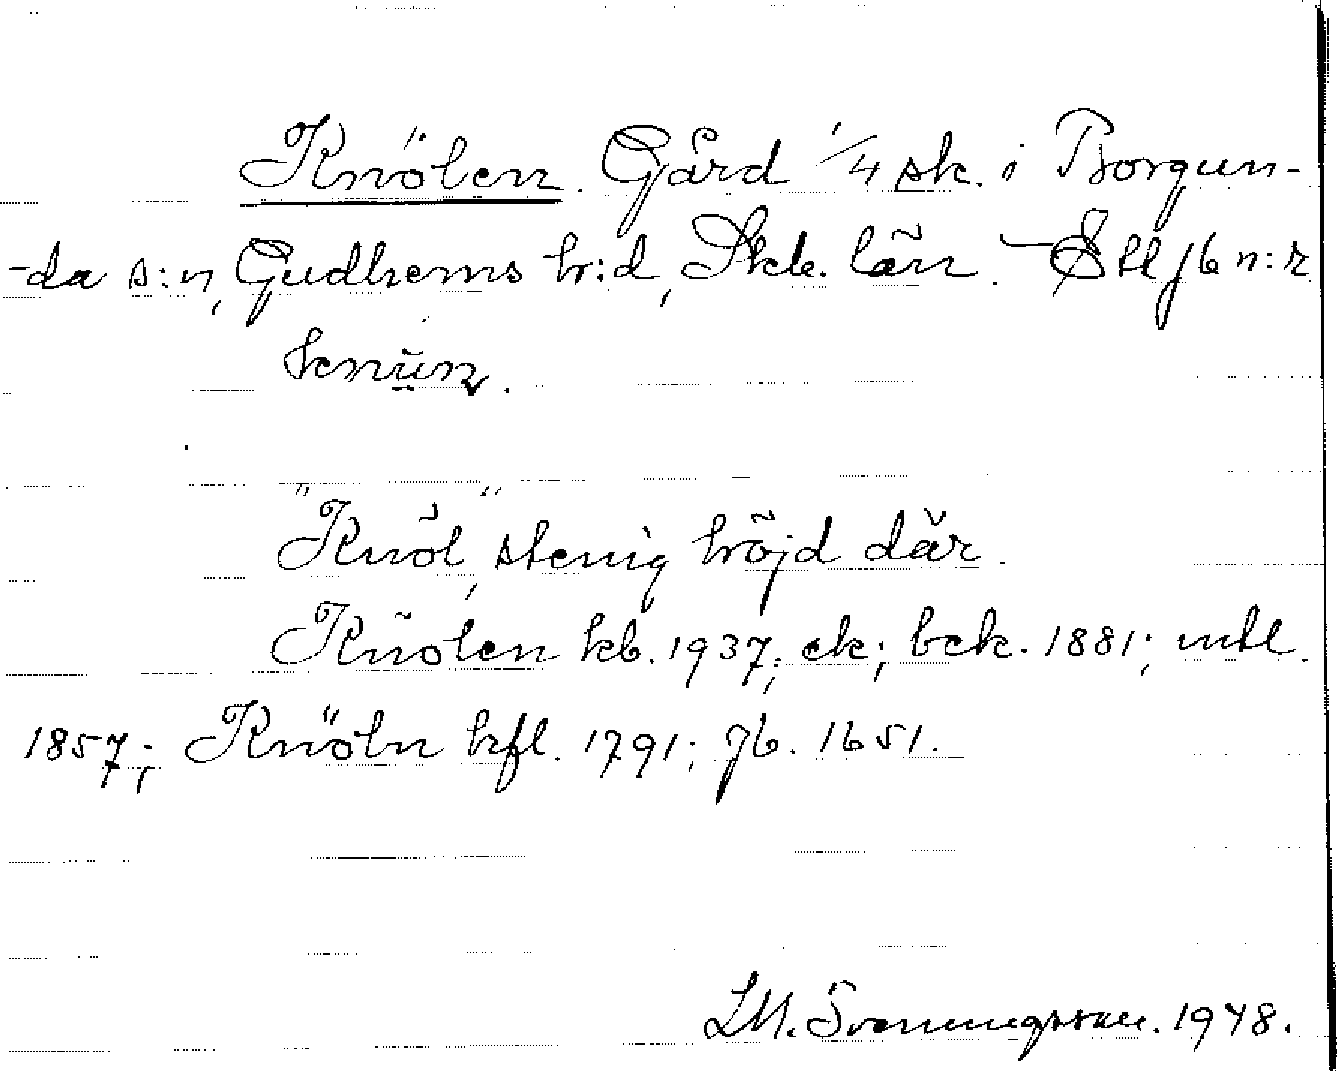 Knölen. Gård 1/4 sk. i Borgun-
-da s:n, Gudhems hr:d, Skb. län. – Stl jb n:r

"Knöl", stenig höjd där.
Knölen kb. 1937; ek; bek. 1881; mtl.
1857; Knöln hfl. 1791; jb. 1651.
LM. Svenungsson. 1948.